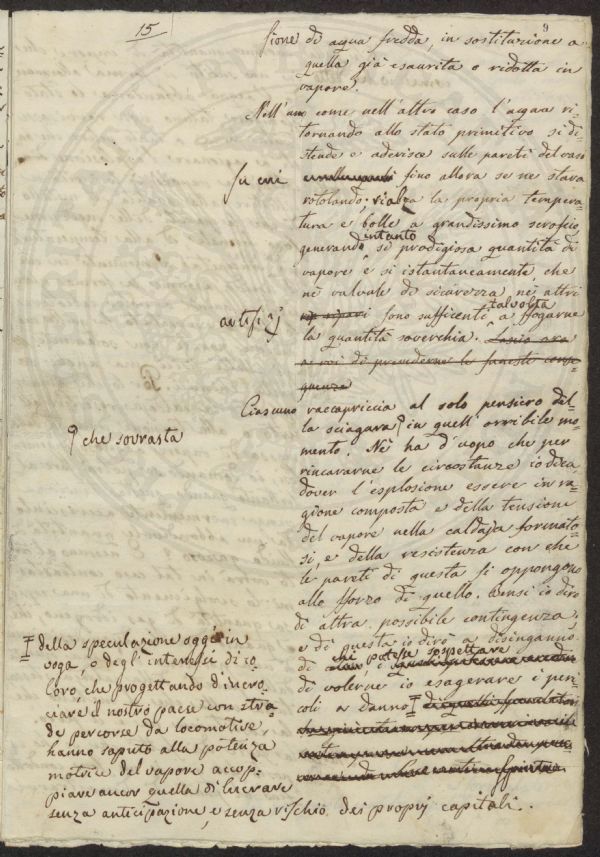 15
9
sione di acqua fredda, in sostituzione a
quella già esaurita o ridotta in
vapore.
Nell'uno come nell'altro caso l'acqua ri-
tornando allo stato primitivo si di-
stende e aderisce sulle pareti del vaso
su cui
fino allora se ne stava
rotolando; rialza la propria tempera
tura e bolle a grandissimo scroscio,
generando intanto sì prodigiosa quantità di
vapore e sì istantaneamente, che
nè valvole di sicurezza nè altri
artifizj
sono sufficienti talvolta a sfogarne
la quantità soverchia. Lascio ora
a voi di prenderne le funeste conse-
guenze
Ciascuno raccapriccia al solo pensiero del-
la sciagura in quell'orribile mo-
che sovrasta
mento. Nè ha d'uopo che per
rincararne le circostanze io dica
dover l'esplosione essere in ra-
gione composta e della tensione
del vapore nella caldaja formato-
si, e della resistenza con che
le pareti di questa si oppongono
allo sforzo di quello. Anzi io dirò
di altra possibile contingenza;
e di questa io dirò a disinganno
di chi potesse sospettare
di volerne io esagerare i peri-
coli a danno
della speculazione oggi in
voga, o degl'interessi di co-
loro, che progettando d'incro-
ciare il nostro paese con stra-
de percorse da locomotive,
hanno saputo alla potenza
motrice del vapore accop-
piare ancor quella di lucrare
senza anticipazione, e senza rischio dei proprj capitali.